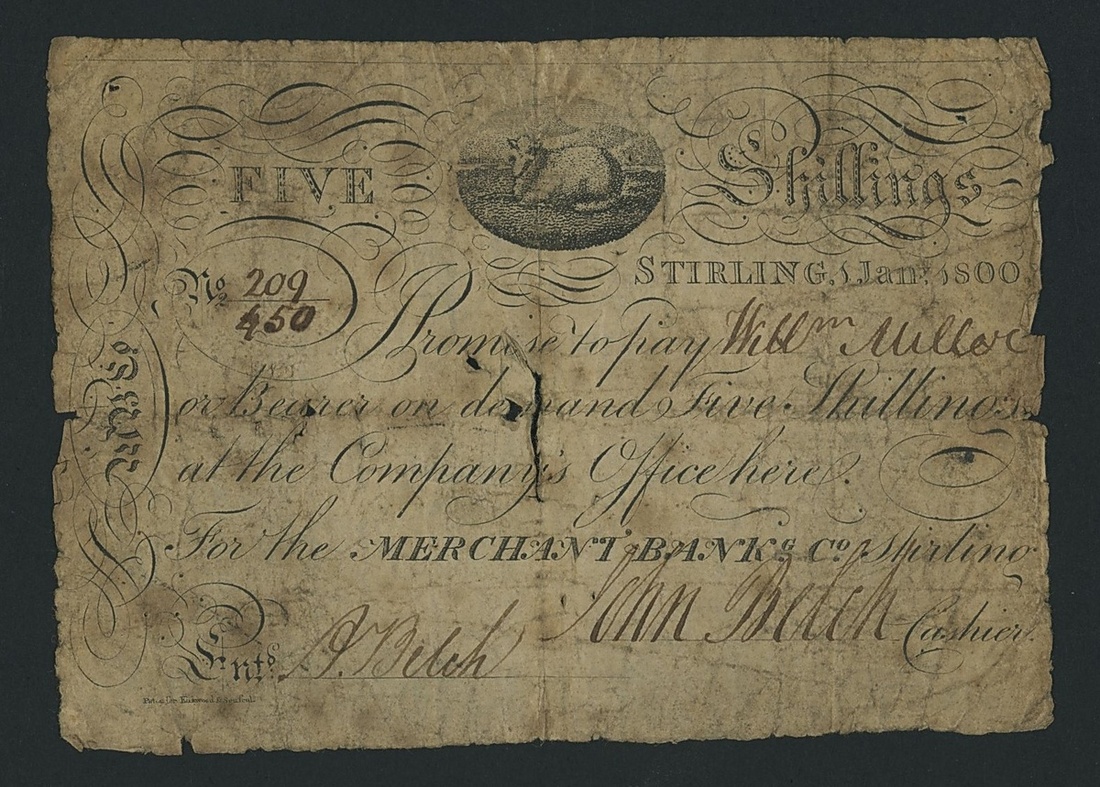 FIVE Shillings
STIRLING, 1 Jan: 1800
No 209
450
Promise to pay Willm Millar
or Bearer on demand Five Shillings
at the Company's Office here.
For the MERCHANT BANKg Co Stirling
John Belch Cashier
Entd J. Belch